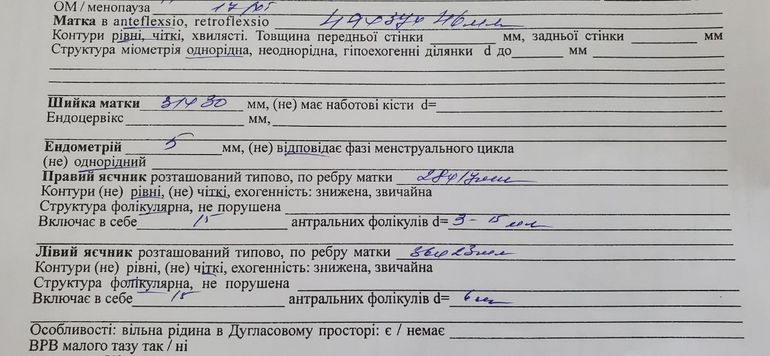 ОМ / менопауза 17/05
Матка в anteflexsio, retroflexsio 49х37х46мм
Контури рівні, чіткі, хвилясті. Товщина передньої стінки мм, задньої стінки мм
Структура міометрія однорідна, неоднорідна, гіпоехогенні ділянки d до мм
Шийка матки 31х30 мм, (не) має наботові кісти d=
Ендоцервікс мм,
Ендометрій 5 мм, (не) відповідає фазі менструального цикла
(не) однорідний
Правий яєчник розташований типово, по ребру матки 28х17мм
Контури (не) рівні, (не) чіткі, ехогенність: знижена, звичайна
Структура фолікулярна, не порушена
Включає в себе 15 антральних фолікулів d= 3-15мм
Лівий яєчник розташований типово, по ребру матки 36х23мм
Контури (не) рівні, (не) чіткі, ехогенність: знижена, звичайна
Структура фолікулярна, не порушена
Включає в себе 15 антральних фолікулів d= 6мм
Особливості: вільна рідина в Дугласовому просторі: є / немає
ВРВ малого тазу так / ні